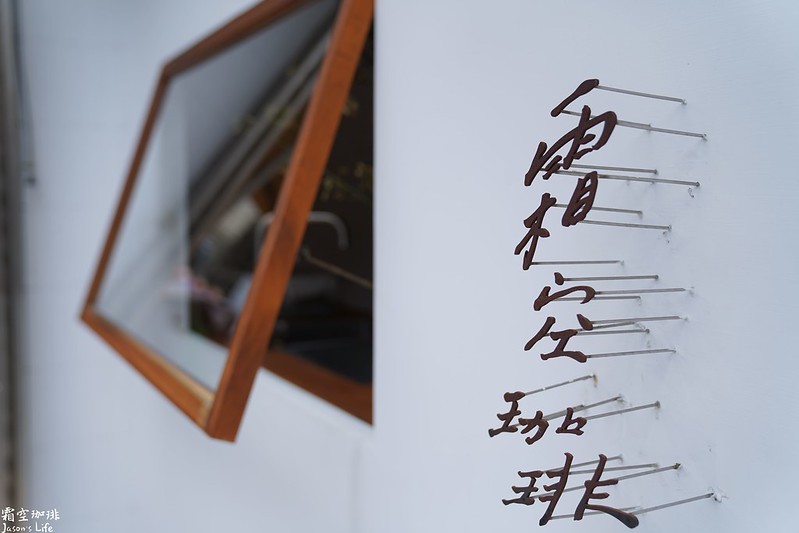 霜空珈琲
霜空珈琲
Jason's Life